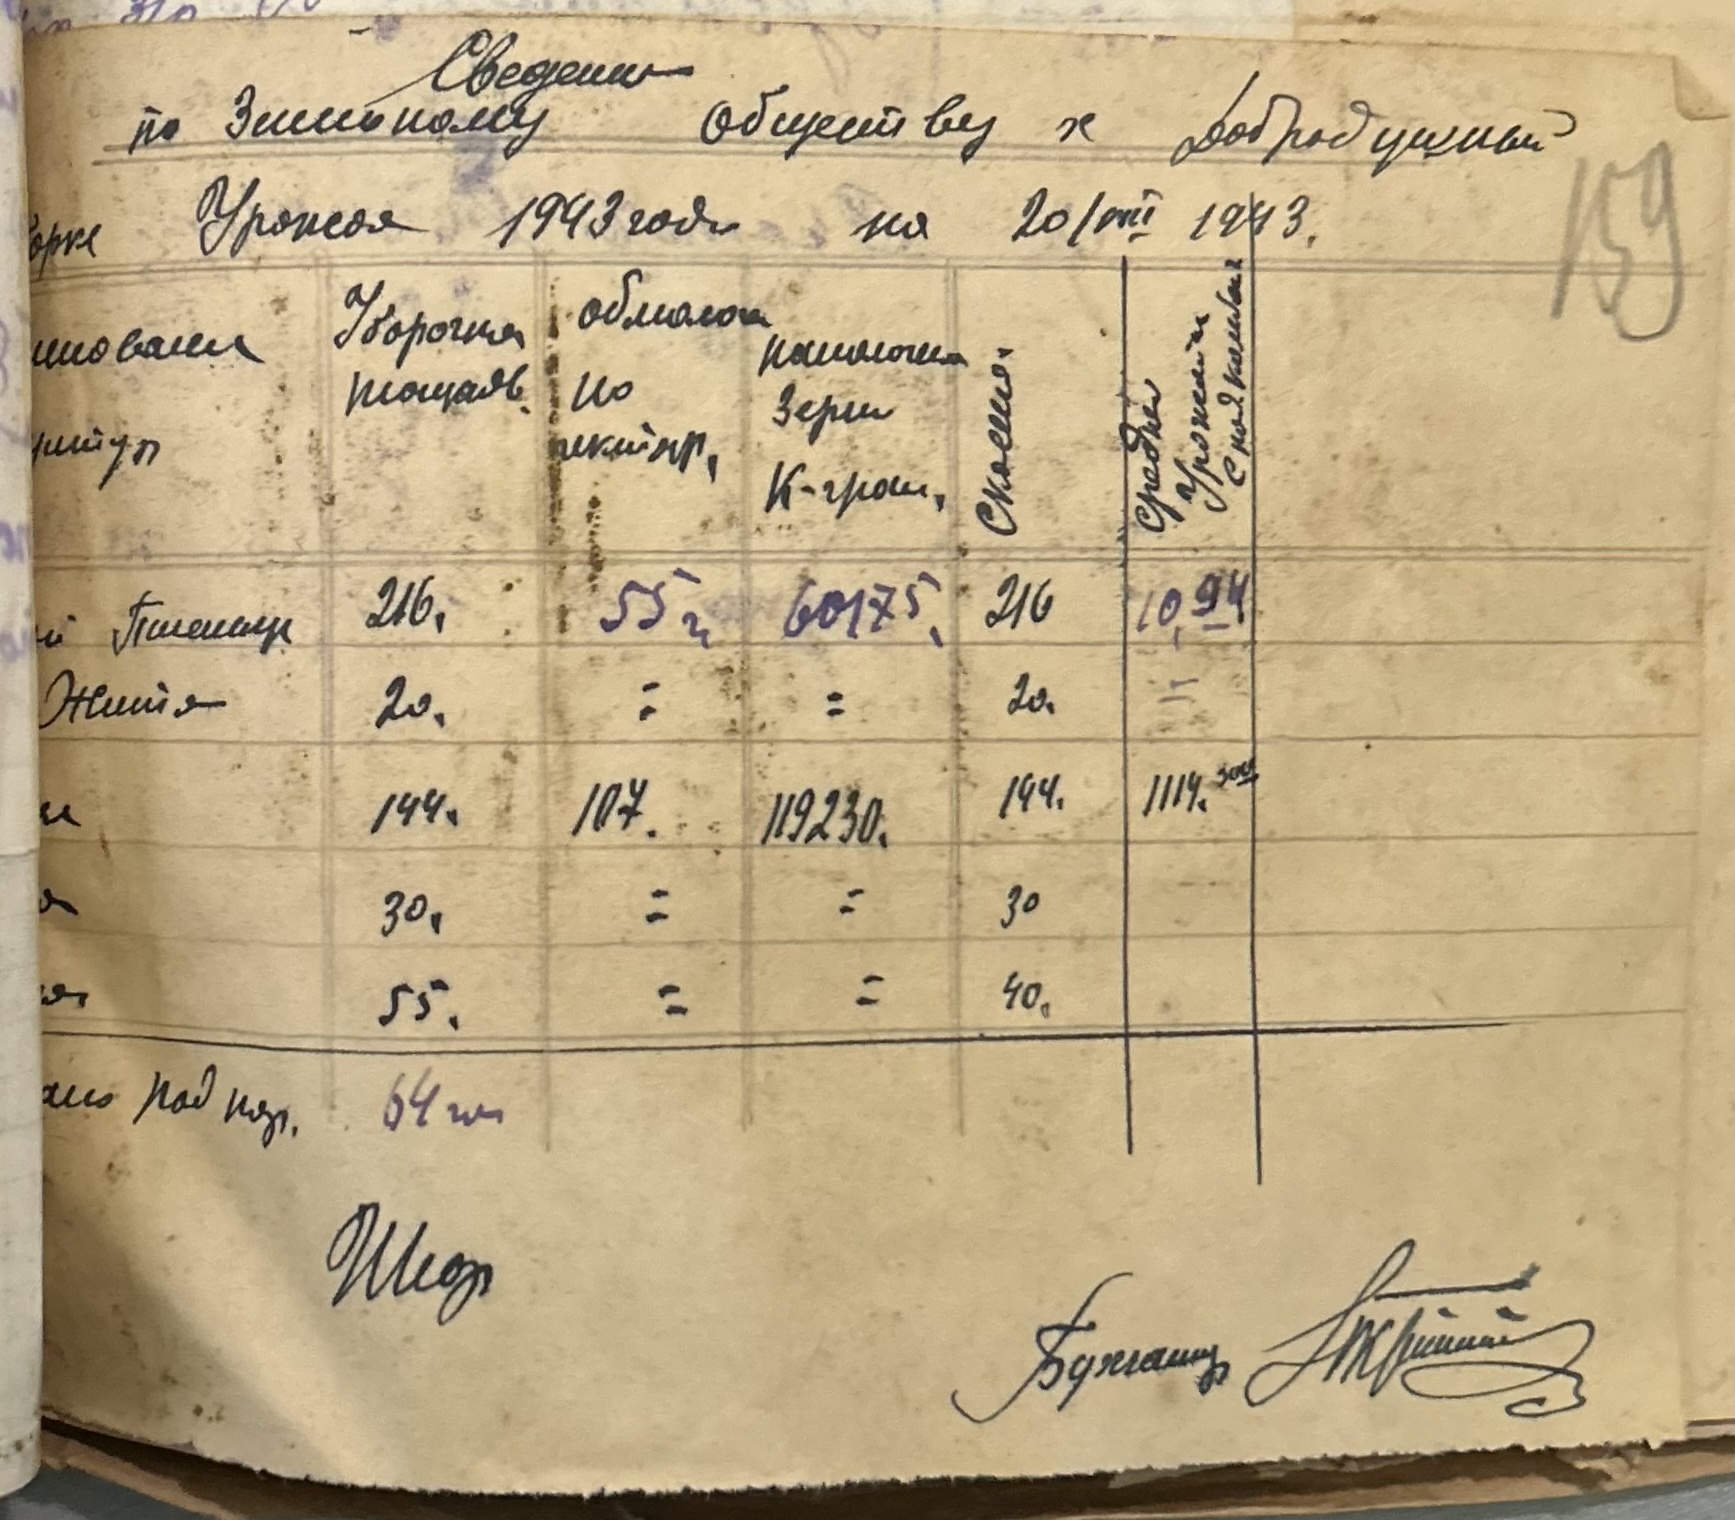 Сведение
по Земельному Обществу х Добродушный
орке Урожая 1943 года на 20/VIII 1943.
159
Уборочная площадь.
обмолочен по гектар.
намолочен Зерна К-грам.
Скошен.
Средня Урожай с
й Пшеницы 216. 55 г. 60175. 216 10,94
Жита 20. = = 20. =
144. 107. 119230. 144. 1114.
30. = = 30
55. = = 40.
под пар. 64 га
Бухгалтер